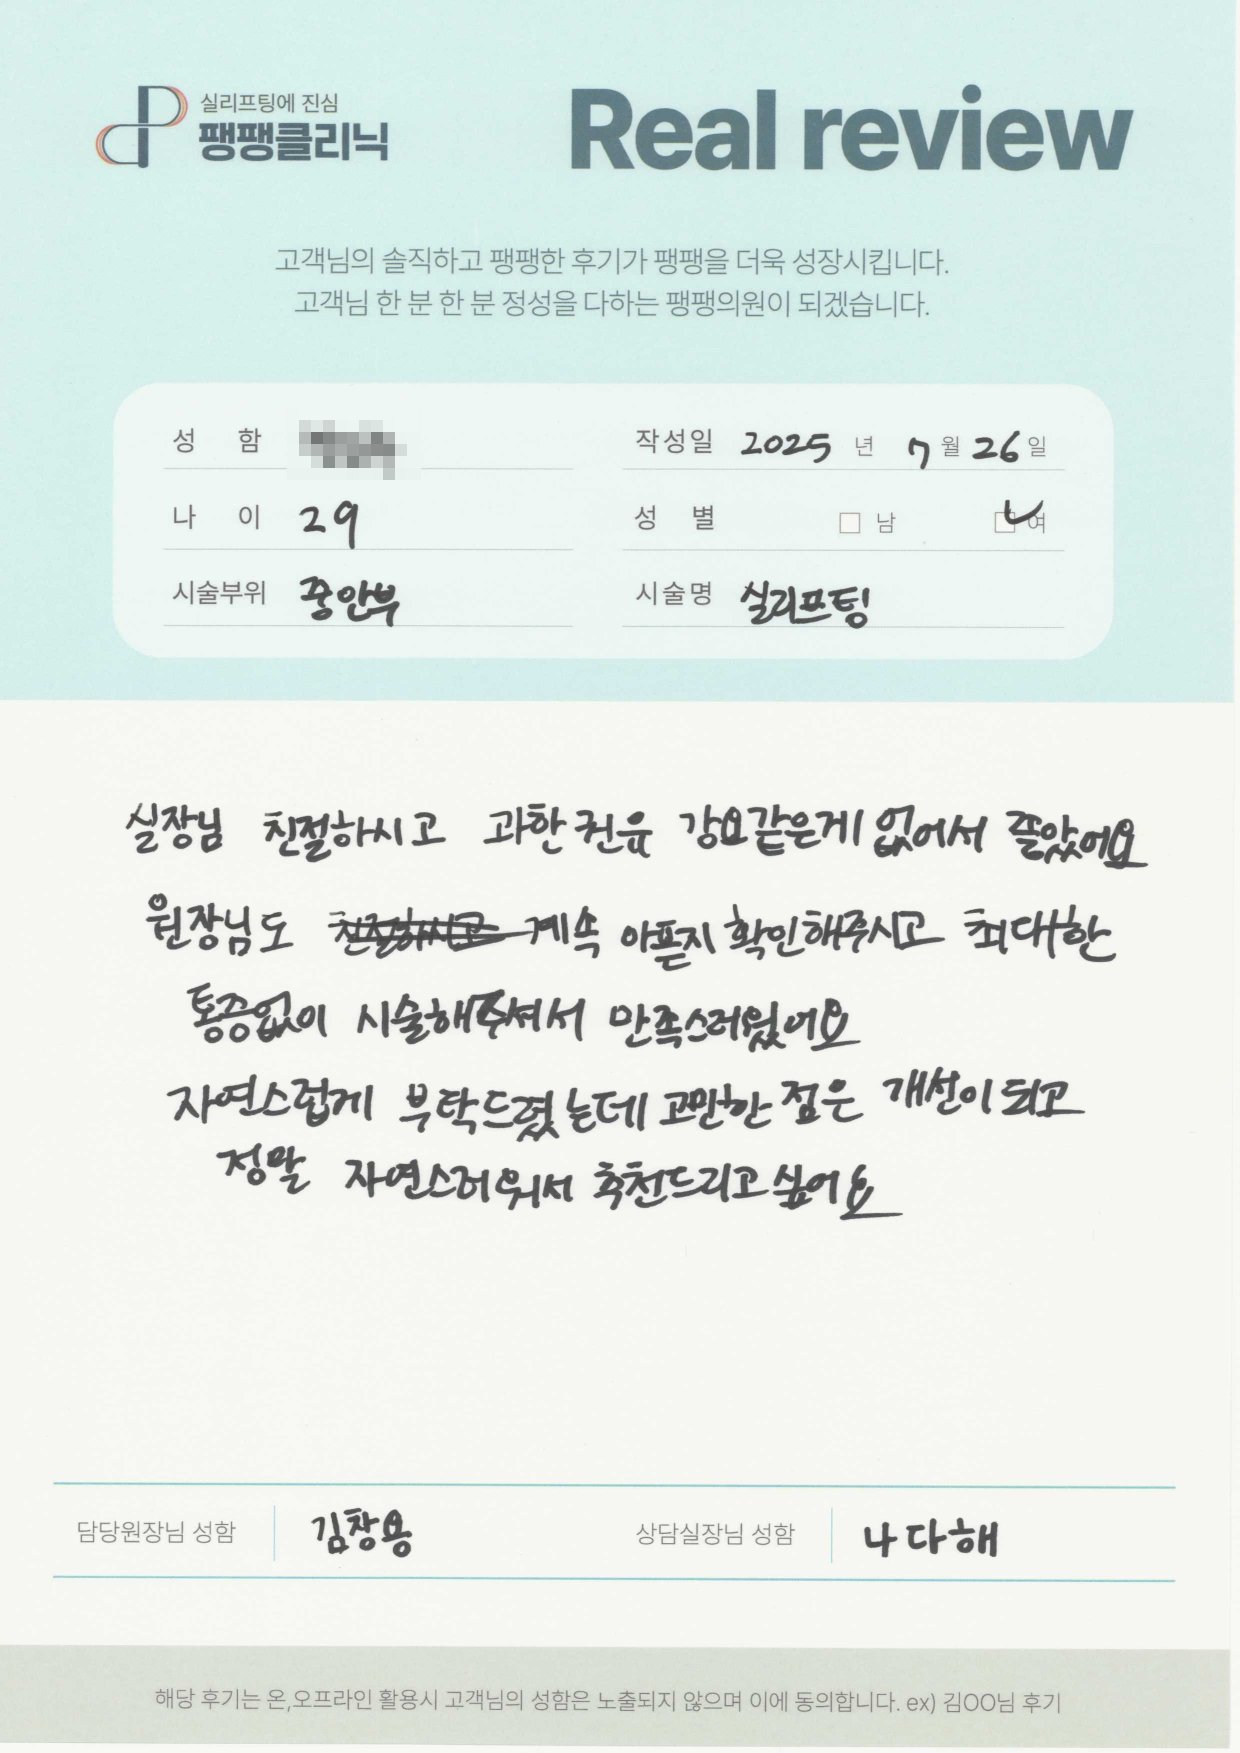 실리프팅에 진심
팽팽클리닉
Real review
고객님의 솔직하고 팽팽한 후기가 팽팽을 더욱 성장시킵니다.
고객님 한 분 한 분 정성을 다하는 팽팽의원이 되겠습니다.
성 함 작성일 2025 년 7 월 26 일
나 이 29 성 별 남 여
시술부위 중안부 시술명 실리프팅
실장님 친절하시고 과한권유 강요같은게 없어서 좋았어요
원장님도 친절하시고 계속 아픈지 확인해주시고 최대한
통증없이 시술해주셔서 만족스러웠어요
자연스럽게 부탁드렸는데 고민한 점은 개선이 되고
정말 자연스러워서 추천드리고싶어요
담당원장님 성함 김창용 상담실장님 성함 나다해
해당 후기는 온,오프라인 활용시 고객님의 성함은 노출되지 않으며 이에 동의합니다. ex) 김OO님 후기